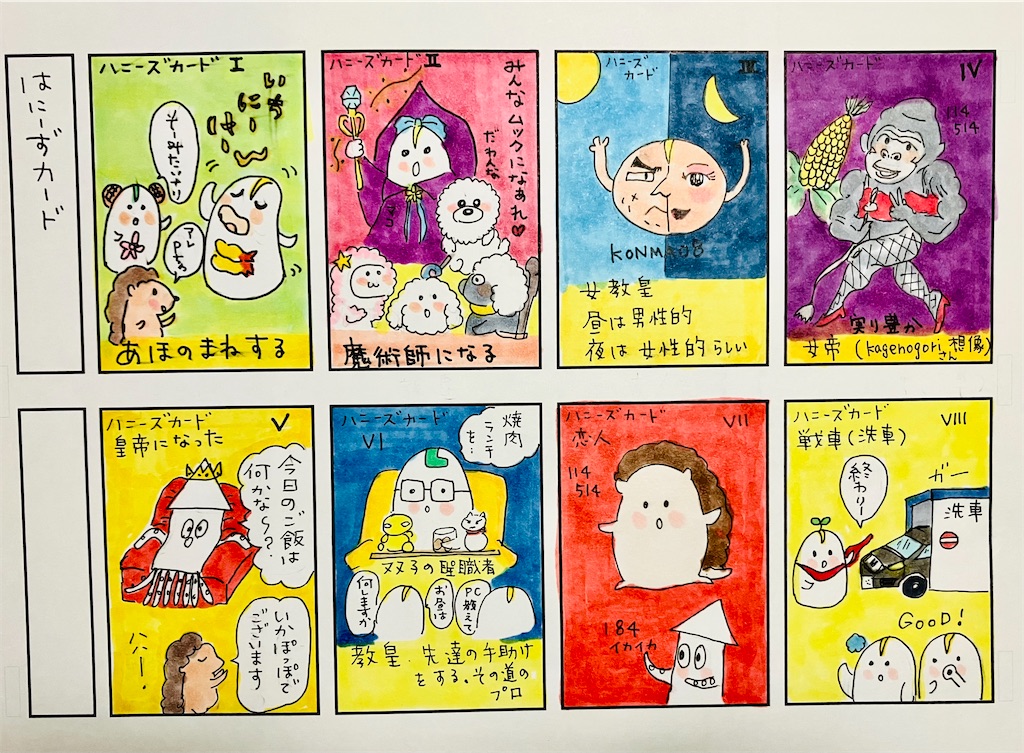 はにーずカード
ハニーズカード I
いち
にー
けーん
そーみたいけい
アレ
あほのまねする
ハニーズカード II
みんなムックになあれ♡
だわんな
魔術師になる
ハニーズ
カード
III
KONMA08
女教皇
昼は男性的
夜は女性的らしい
ハニーズカード
IV
114
514
実り豊か
女帝(kagenogoriさん想像)
ハニーズカード
V
皇帝になった
今日のご飯は
何かな〜?
ハハー.
いかぽっぽで
ございます
ハニーズカード
VI
焼肉
ランチ
を…
双子の聖職者
何しますか
お昼は
PC教えて
教皇、先達の手助け
をする。その道の
プロ
ハニーズカード
VII
恋人
114
514
184
イカイカ
ハニーズカード
VIII
戦車(洗車)
終わりー
ガー
洗車
GOOD!